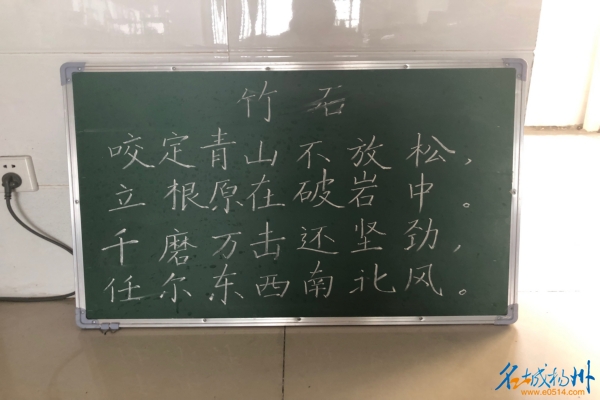 竹石
咬定青山不放松，
立根原在破岩中。
千磨万击还坚劲，
任尔东西南北风。
名城扬州
www.e0514.com